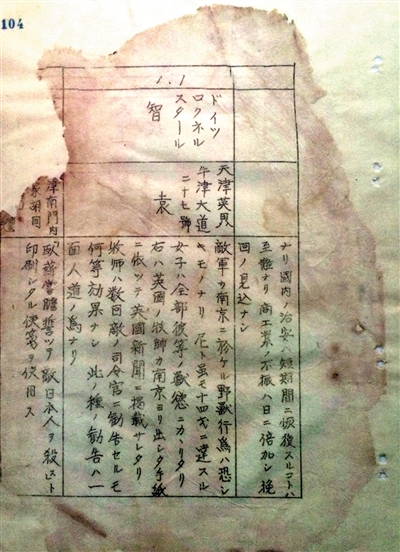 104
1.1
ドイツ
ロクネル
スタール
智
天津英界
牛津大道
二十七號
袁
津南門内
家胡同
ナリ國内ノ治安ハ短期間ニ恢復スルコトハ
至難ナリ商工業ノ不振ハ日ニ倍加シ挽
回ノ見込ナシ
敵軍カ南京ニ於ケル野獣行為ハ恐シ
キモノナリ 尼ト虽モ十四才ニ達スル
女子ハ全部彼等ノ獣慾ニカヽリタリ
右ハ英國ノ牧師カ南京ヨリ出シタ手紙
ニ依ツテ英國新聞ニ掲載サレタリ
牧師ハ数回敵ノ司令官ニ勧告セルモ
何等効果ナシ 此ノ種ノ勧告ハ一
面人道ノ為ナリ
「臥薪嘗膽誓ツテ敵日本人ヲ殺セト
印刷シタル便箋ヲ使用ス